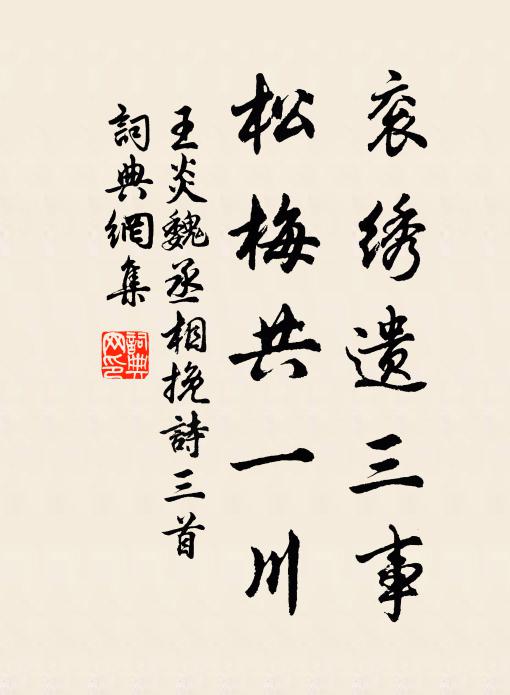 衮绣遗三事
松梅共一川
王炎魏丞相挽詩三首
詞典網集
詞典網印